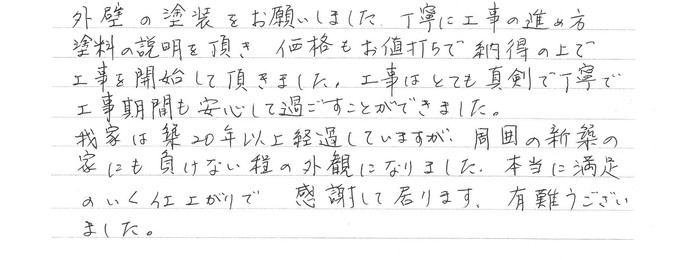 外壁の塗装をお願いしました。丁寧に工事の進め方
塗料の説明を頂き 価格もお値打ちで納得の上で
工事を開始して頂きました。工事はとても真剣で丁寧で
工事期間も安心して過ごすことができました。
我家は築20年以上経過していますが、周囲の新築の
家にも負けない程の外観になりました。本当に満足
のいく仕上がりで 感謝して居ります。有難うござい
ました。